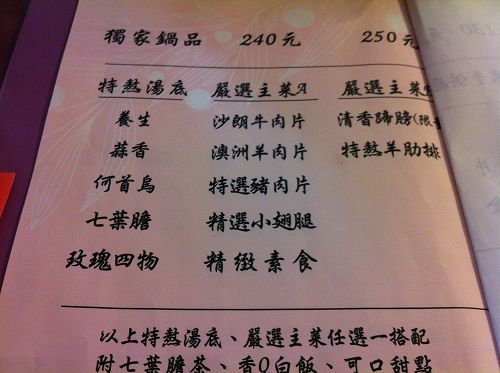 獨家鍋品 240元 250元
特熬湯底 嚴選主菜A 嚴選主菜
養生 沙朗牛肉片 清香蹄膀(限
蒜香 澳洲羊肉片 特熬羊肋排
何首烏 特選豬肉片
七葉膽 精選小翅腿
玫瑰四物 精緻素食
以上特熬湯底、嚴選主菜任選一搭配
附七葉膽茶、香Q白飯、可口甜點